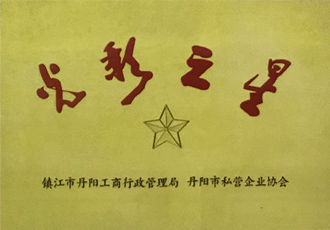 光彩之星
镇江市丹阳工商行政管理局 丹阳市私营企业协会